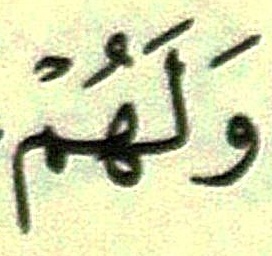 وَلَهُمْ